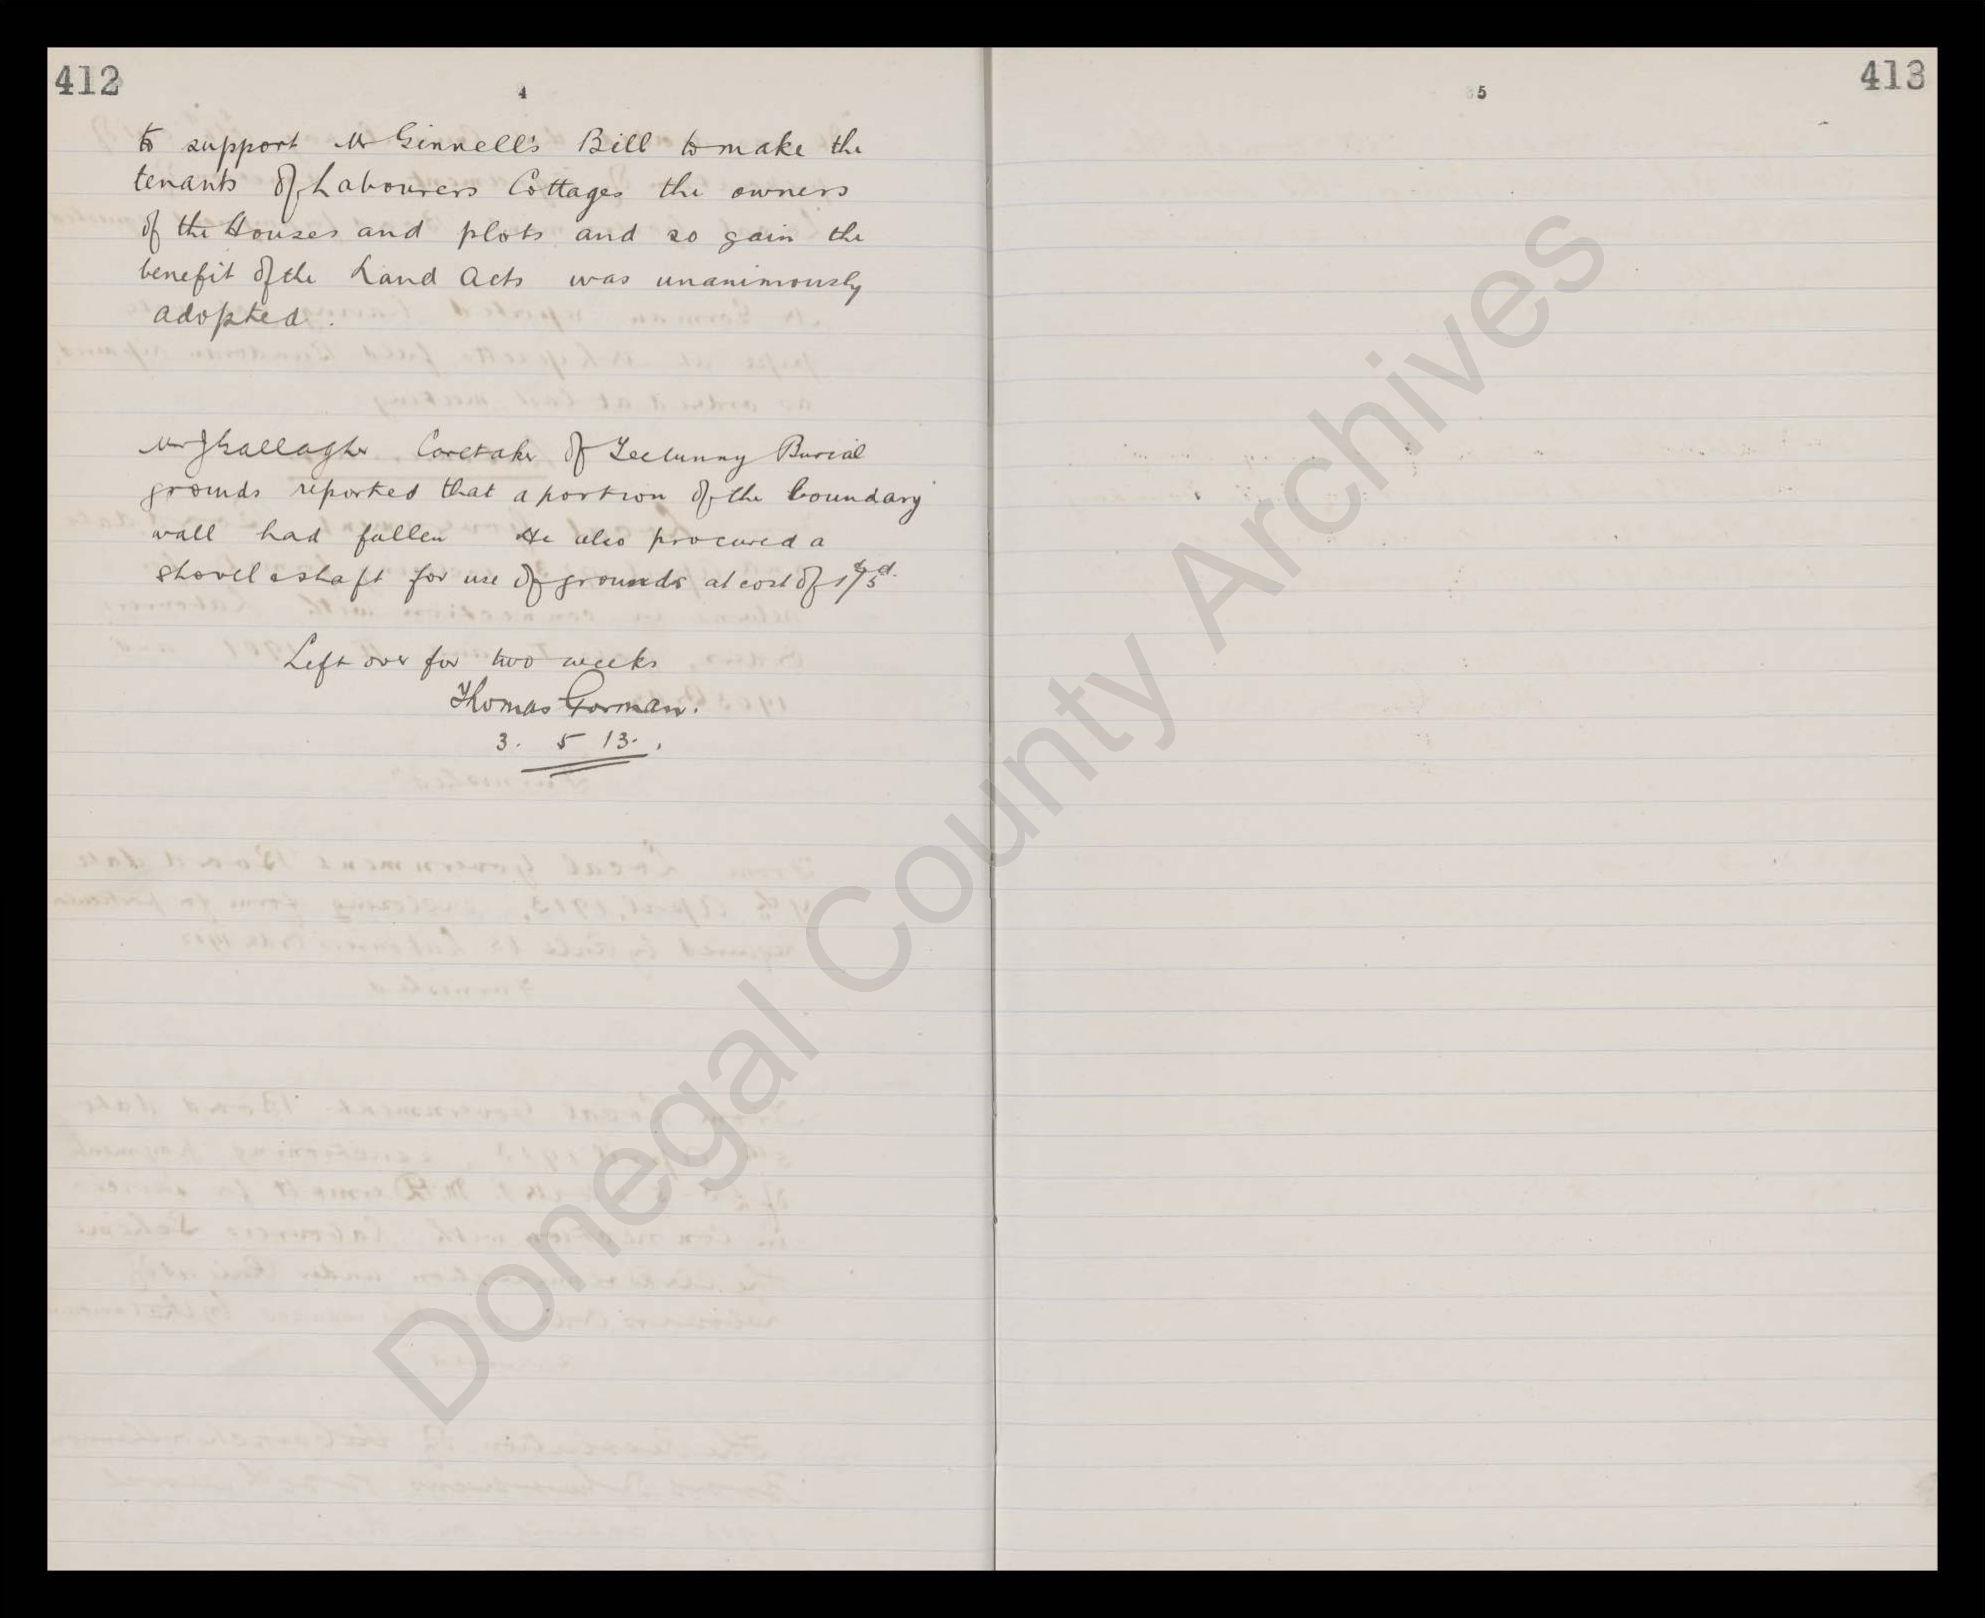 412
4
to support Mr Ginnell's Bill to make the
tenants of Labourers Cottages the owners
of the Houses and plots and so gain the
benefit of the Land Acts was unanimously
adopted.
Mr J Gallagher Caretaker of Teetunny Burial
grounds reported that a portion of the boundary
wall had fallen He also procured a
shovel & shaft for use of grounds at cost of 1/5d.
Left over for two weeks
Thomas Gorman.
3. 5 13.
413
5
Donegal County Archives